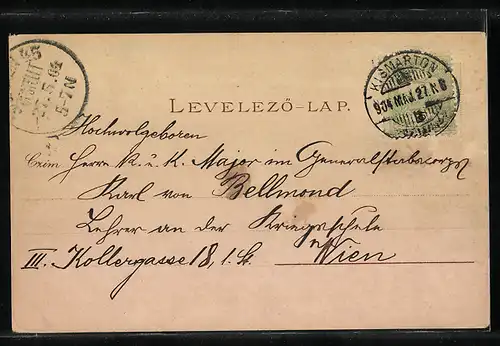 27.5.04
5-7N
KISMARTON
904 MAJ. 27 N 6
LEVELEZŐ-LAP.
Hochwolgeboren
Czim Herrn K. u. K. Major im Generalstabscorps
Karl von Bellmond
Lehrer an der Kriegsschule
III. Kollergasse 18, 1. St. Wien